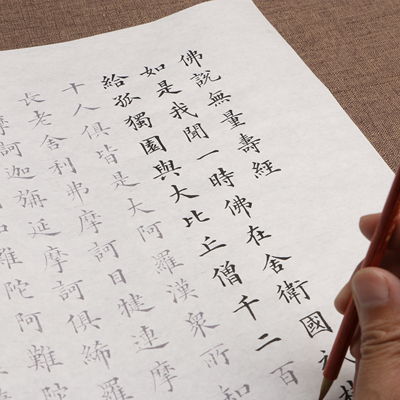 佛說無量壽經
如是我聞一時佛在舍衛國
給孤獨園與大比丘僧千二百
十人俱皆是大阿羅漢眾所知
長老舍利弗摩訶目揵連摩
訶迦旃延摩訶俱絺羅
陀阿難陀